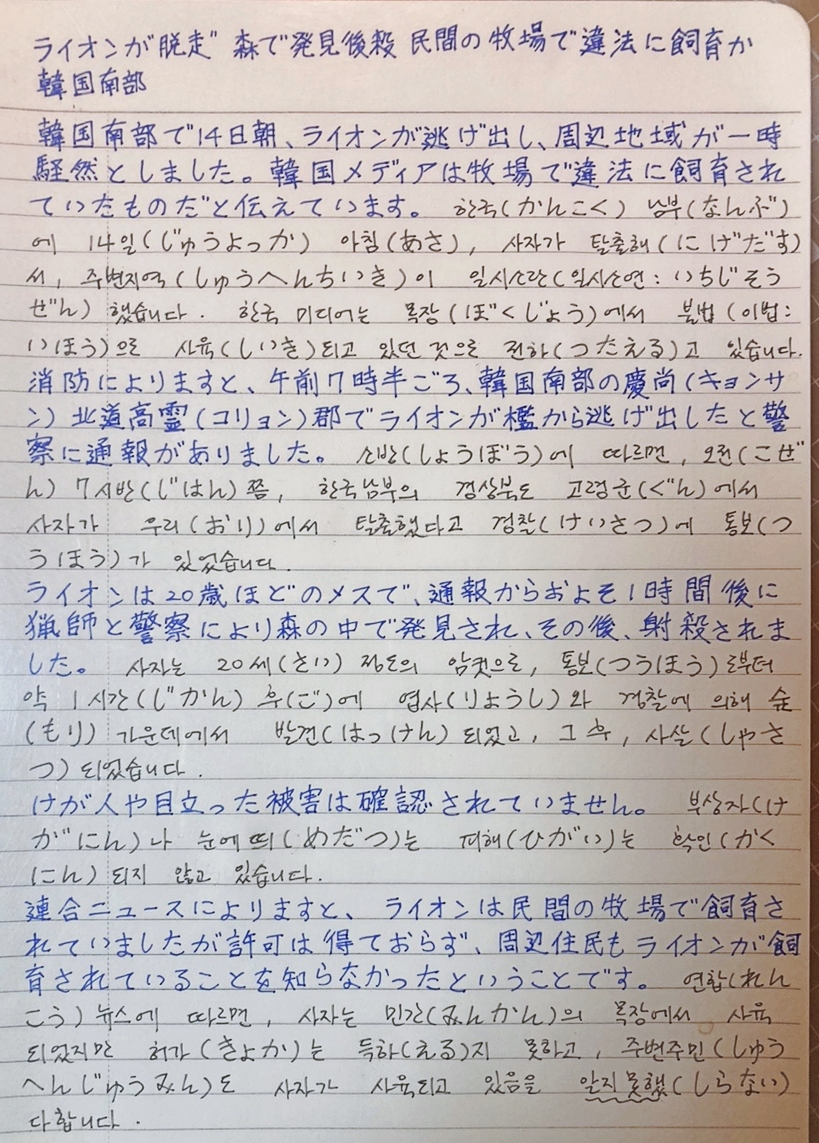 ライオンが脱走" 森で発見後殺 民間の牧場で違法に飼育か
韓国南部
韓国南部で14日朝、ライオンが逃げ出し、周辺地域が一時
騒然としました。韓国メディアは牧場で違法に飼育され
ていたものだと伝えています。 한국(かんこく) 남부(なんぶ)
에 14일(じゅうよっか) 아침(あさ), 사자가 탈출해(にげだす)
서, 주변지역(しゅうへんちいき)이 일시소란(일시소연: いちじそう
ぜん) 했습니다. 한국 미디어는 목장(ぼくじょう)에서 불법(이법:
いほう)으로 사육(しいき)되고 있던 것으로 전하(つたえる)고 있습니다.
消防によりますと、午前7時半ごろ、韓国南部の慶尚(キョンサ
ン)北道高霊(コリョン)郡でライオンが檻から逃げ出したと警
察に通報がありました。 소방(しょうぼう)에 따르면, 오전(ごぜ
ん) 7시반(じはん)쯤, 한국남부의 경상북도 고령군(ぐん)에서
사자가 우리(おり)에서 탈출했다고 경찰(けいさつ)에 통보(つ
うほう)가 있었습니다.
ライオンは20歳ほどのメスで、通報からおよそ1時間後に
猟師と警察により森の中で発見され、その後、射殺されま
した。 사자는 20세(さい) 정도의 암컷으로, 통보(つうほう)로부터
약 1시간(じかん) 후(ご)에 엽사(りょうし)와 경찰에 의해 숲
(もり) 가운데에서 발견(はっけん) 되었고, 그 후, 사살(しゃさ
つ) 되었습니다.
けが人や目立った被害は確認されていません。 부상자(け
がにん)나 눈에 띄(めだつ)는 피해(ひがい)는 확인(かく
にん) 되지 않고 있습니다.
連合ニュースによりますと、 ライオンは民間の牧場で飼育さ
れていましたが許可は得ておらず、周辺住民もライオンが飼
育されていることを知らなかったということです。 연합(れん
こう) 뉴스에 따르면, 사자는 민간(みんかん)의 목장에서 사육
되었지만 허가(きょか)는 득하(える)지 못하고, 주변주민(しゅう
へんじゅうみん)도 사자가 사육되고 있음을 알지못했(しらない)
다합니다.